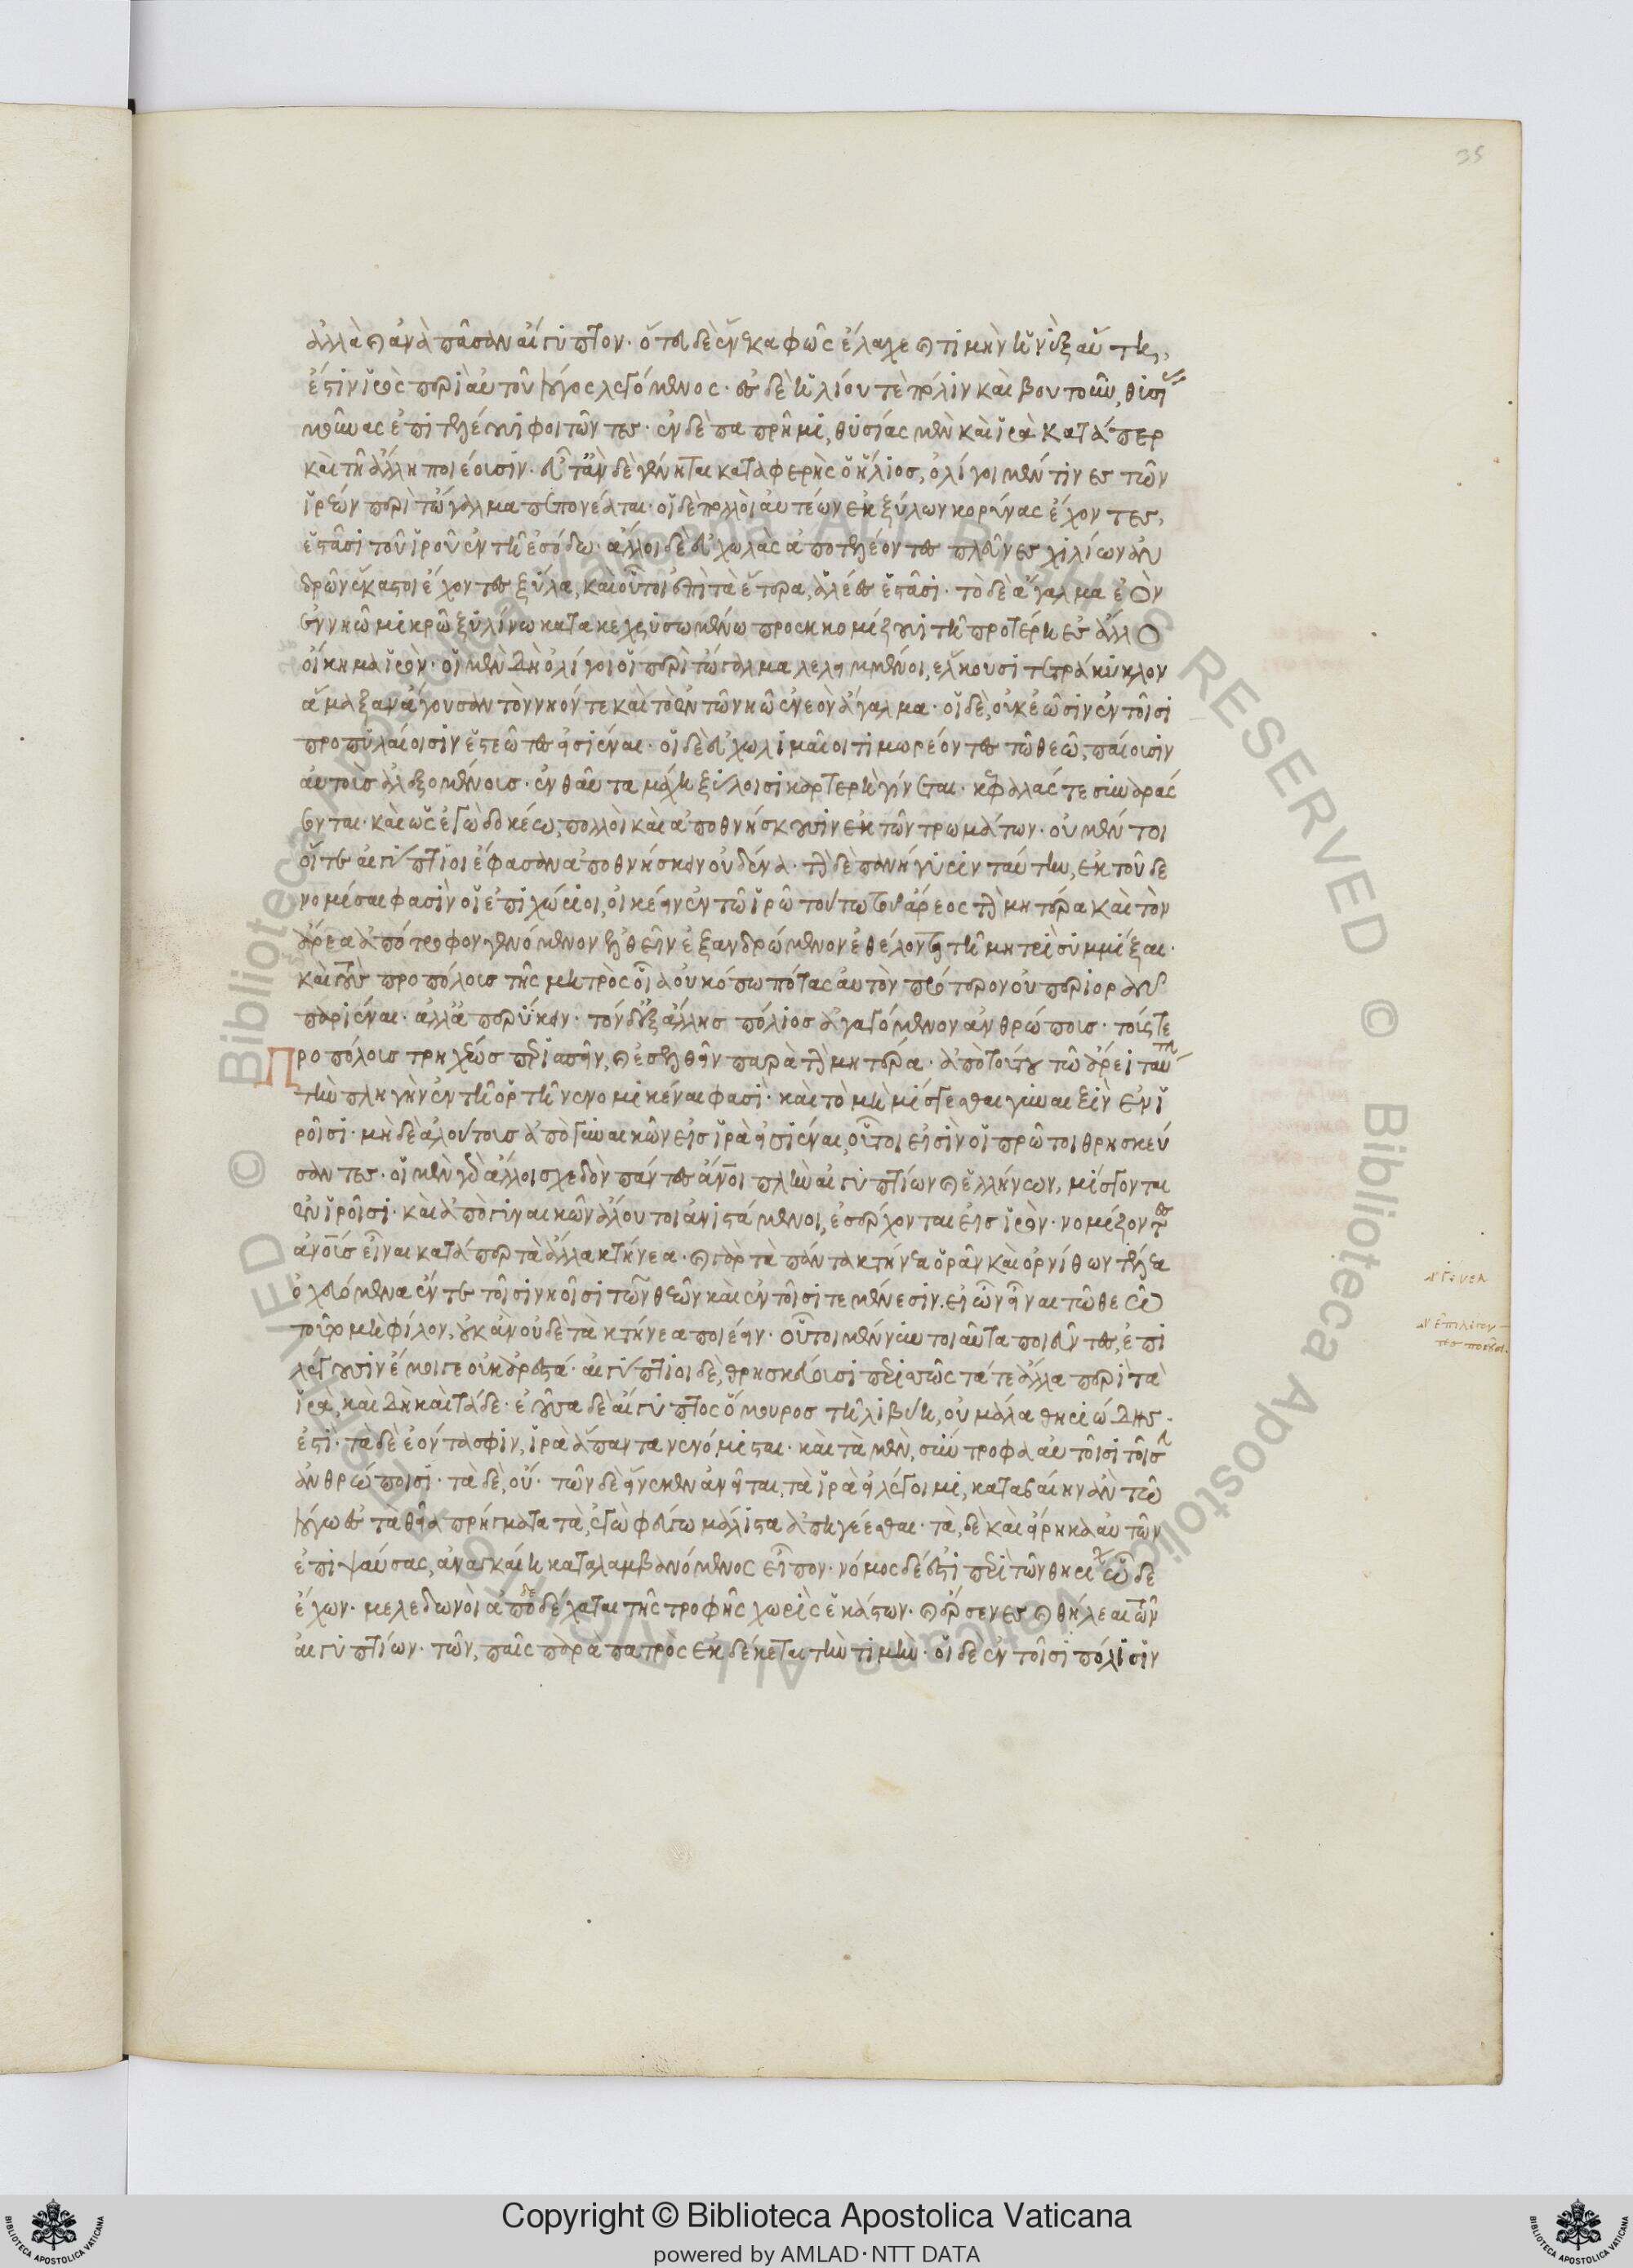 35
ἀλλὰ καὶ ἀνὰ πᾶσαν αἴγυπτον· ὅτευ δὲ εἵνεκα φῶς ἔλαχε καὶ τιμὴν ἡ νὺξ αὕτη,
ἔστιν ἱρὸς περὶ αὐτοῦ λόγος λεγόμενος· ἐς δὲ ἡλίου τε πόλιν καὶ βουτοῦν, θυσί
μούνας ἐπιτελέουσι φοιτῶντες· ἐν δὲ παπρήμι, θυσίας μὲν καὶ ἱρὰ κατάπερ
καὶ τῇ ἄλλῃ ποιέουσιν· εὖτ' ἂν δὲ γένηται καταφερὴς ὁ ἥλιος, ὀλίγοι μέν τινες τῶν
ἱρέων περὶ τὤγαλμα πεπονέαται· οἱ δὲ πολλοὶ αὐτέων ἐκ ξύλων κορύνας ἔχοντες,
ἑστᾶσι τοῦ ἱροῦ ἐν τῇ ἐσόδῳ· ἄλλοι δὲ εὐχωλὰς ἀποτελέοντες πλεῦνες χιλίων ἀν
δρῶν ἕκαστοι ἔχοντες ξύλα, καὶ οὗτοι ἐπὶ τὰ ἕτερα, ἁλέες ἑστᾶσι· τὸ δὲ ἄγαλμα ἐὸν
ἐν νηῷ μικρῷ ξυλίνῳ κατακεχρυσωμένῳ προεκκομίζουσι τῇ προτέρῃ ἐς ἄλλο
οἴκημα ἱρόν· οἱ μὲν δὴ ὀλίγοι οἱ περὶ τὤγαλμα λελειμμένοι, ἕλκουσι τετράκυκλον
ἅμαξαν ἄγουσαν τὸν νηόν τε καὶ τὸ ἐν τῷ νηῷ ἐνεὸν ἄγαλμα· οἱ δὲ, οὐκ ἐῶσιν ἐν τοῖσι
προπυλαίοισιν ἑστεῶτες ἐσιέναι· οἱ δὲ εὐχωλιμαῖοι τιμωρέοντες τῷ θεῷ, παίουσιν
αὐτοὺς ἀλεξομένους· ἐνθαῦτα μάχη ξύλοισι καρτερὴ γίνεται· κεφαλάς τε συναράσ
σονται· καὶ ὡς ἐγὼ δοκέω, πολλοὶ καὶ ἀποθνήσκουσιν ἐκ τῶν τρωμάτων· οὐ μέν τοι
οἵ γε αἰγύπτιοι ἔφασαν ἀποθνήσκειν οὐδένα· τὴν δὲ πανήγυριν ταύτην, ἐκ τοῦδε
νομίσαι φασὶν οἱ ἐπιχώριοι, οἰκέειν ἐν τῷ ἱρῷ τούτῳ τοῦ ἄρεος τὴν μητέρα καὶ τὸν
ἄρεα ἀπότροφον γενόμενον ἐλθεῖν ἐξανδρωμένον ἐθέλοντα τῇ μητρὶ συμμίξαι·
καὶ τοὺς προπόλους τῆς μητρὸς οἷα οὐκ ὀπωπότας αὐτὸν πρότερον οὐ περιορᾶν
παριέναι· ἀλλὰ περύκειν· τὸν δὲ ἐξ ἄλλης πόλιος ἀγαγόμενον ἀνθρώπους· τούς τε
προπόλους τρηχέως περισπεῖν, καὶ ἐσελθεῖν παρὰ τὴν μητέρα· ἀπὸ τούτου τῷ ἄρεϊ ταύ
την πληγὴν ἐν τῇ ὁρτῇ νενομικέναι φασί· καὶ τὸ μὴ μίσγεσθαι γυναιξὶν ἐν ἱ
ροῖσι· μηδὲ ἀλούτους ἀπὸ γυναικῶν εἰς ἱρὰ ἐσιέναι, οὗτοι εἰσὶν οἱ πρῶτοι θρησκεύ
σαντες· οἱ μὲν γὰρ ἄλλοι σχεδὸν πάντες ἄνοι πλὴν αἰγυπτίων καὶ ἑλλήνων, μίσγονται
ἐν ἱροῖσι· καὶ ἀπὸ γυναικῶν ἄλουτοι ἀνιστάμενοι, ἐσέρχονται εἰς ἱρόν· νομίζοντες
ἀνοῖς εἶναι κατάπερ τὰ ἄλλα κτήνεα· καὶ γὰρ τὰ πάντα κτήνεα ὁρᾶν καὶ ὀρνίθων γένεα
ὀχευόμενα ἔν τε τοῖσι νηοῖσι τῶν θεῶν καὶ ἐν τοῖσι τεμένεσιν. εἰ ὦν εἶναι τῷ θεῷ
τοῦτο μὴ φίλον, οὐκ ἂν οὐδὲ τὰ κτήνεα ποιέειν· οὗτοι μέν νυν τοιαῦτα ποιεῦντες, ἐπι
λέγουσιν ἔμοιγε οὐκ ἀρεστά· αἰγύπτιοι δὲ, θρησκεύουσι περισσῶς τά τε ἄλλα περὶ τὰ
ἱρὰ, καὶ δὴ καὶ τάδε· ἐοῦσα δὲ αἴγυπτος ὅμουρος τῇ λιβύῃ, οὐ μάλα θηριώδης
ἐστί· τὰ δὲ ἐόντα σφιν, ἱρὰ ἅπαντα νενόμισται· καὶ τὰ μὲν, σύντροφα αὐτοῖσι τοῖσ
ἀνθρώποισι· τὰ δὲ, οὔ· τῶν δὲ εἵνεκεν ἀνεῖται, τὰ ἱρὰ εἰ λέγοιμι, καταβαίην ἂν τῷ
λόγῳ ἐς τὰ θεῖα πρήγματα τὰ, ἐγὼ φεύγω μάλιστα ἀπηγέεσθαι· τὰ, δὲ καὶ εἴρηκα αὐτῶν
ἐπιψαύσας, ἀναγκαίῃ καταλαμβανόμενος εἶπον· νόμος δέ ἐστι περὶ τῶν θηρίων ὧδε
ἔχων· μελεδωνοὶ ἀποδεδέχαται τῆς τροφῆς χωρὶς ἑκάστων· καὶ ἔρσενες καὶ θήλεαι τῶν
αἰγυπτίων· τῶν, παῖς παρὰ πατρὸς ἐκδέκεται τὴν τιμήν· οἱ δὲ ἐν τοῖσι πόλισιν
Copyright © Biblioteca Apostolica Vaticana
powered by AMLAD·NTT DATA